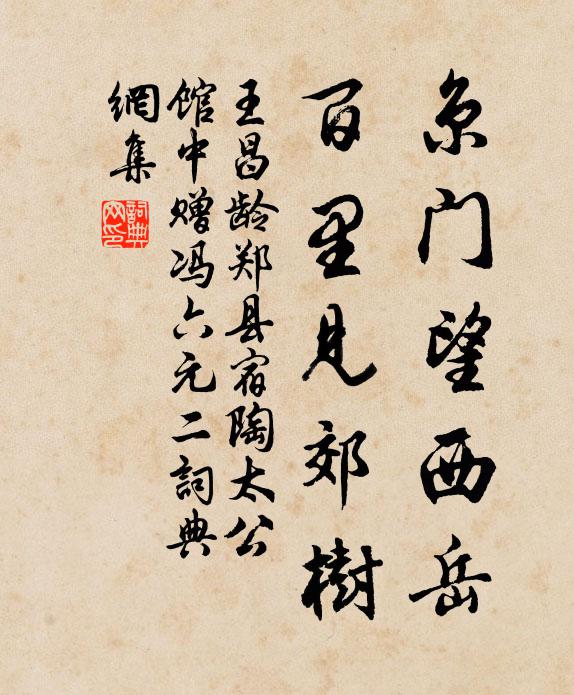 京门望西岳
百里见郊樹
王昌龄郑县宿陶太公
馆中赠冯六元二詞典
網集
詞典
网印